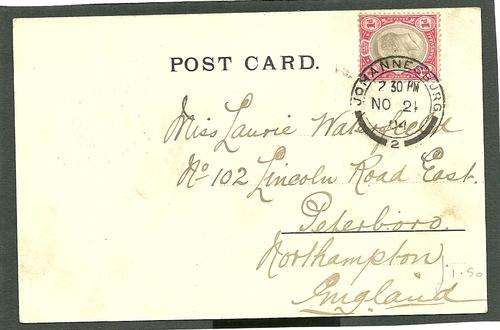 POST CARD.
JOHANNESBURG
7 30 PM
NO 21
04
2
Miss Laurie
No 102 Lincoln Road East.
Peterboro.
Northampton
England
1.50